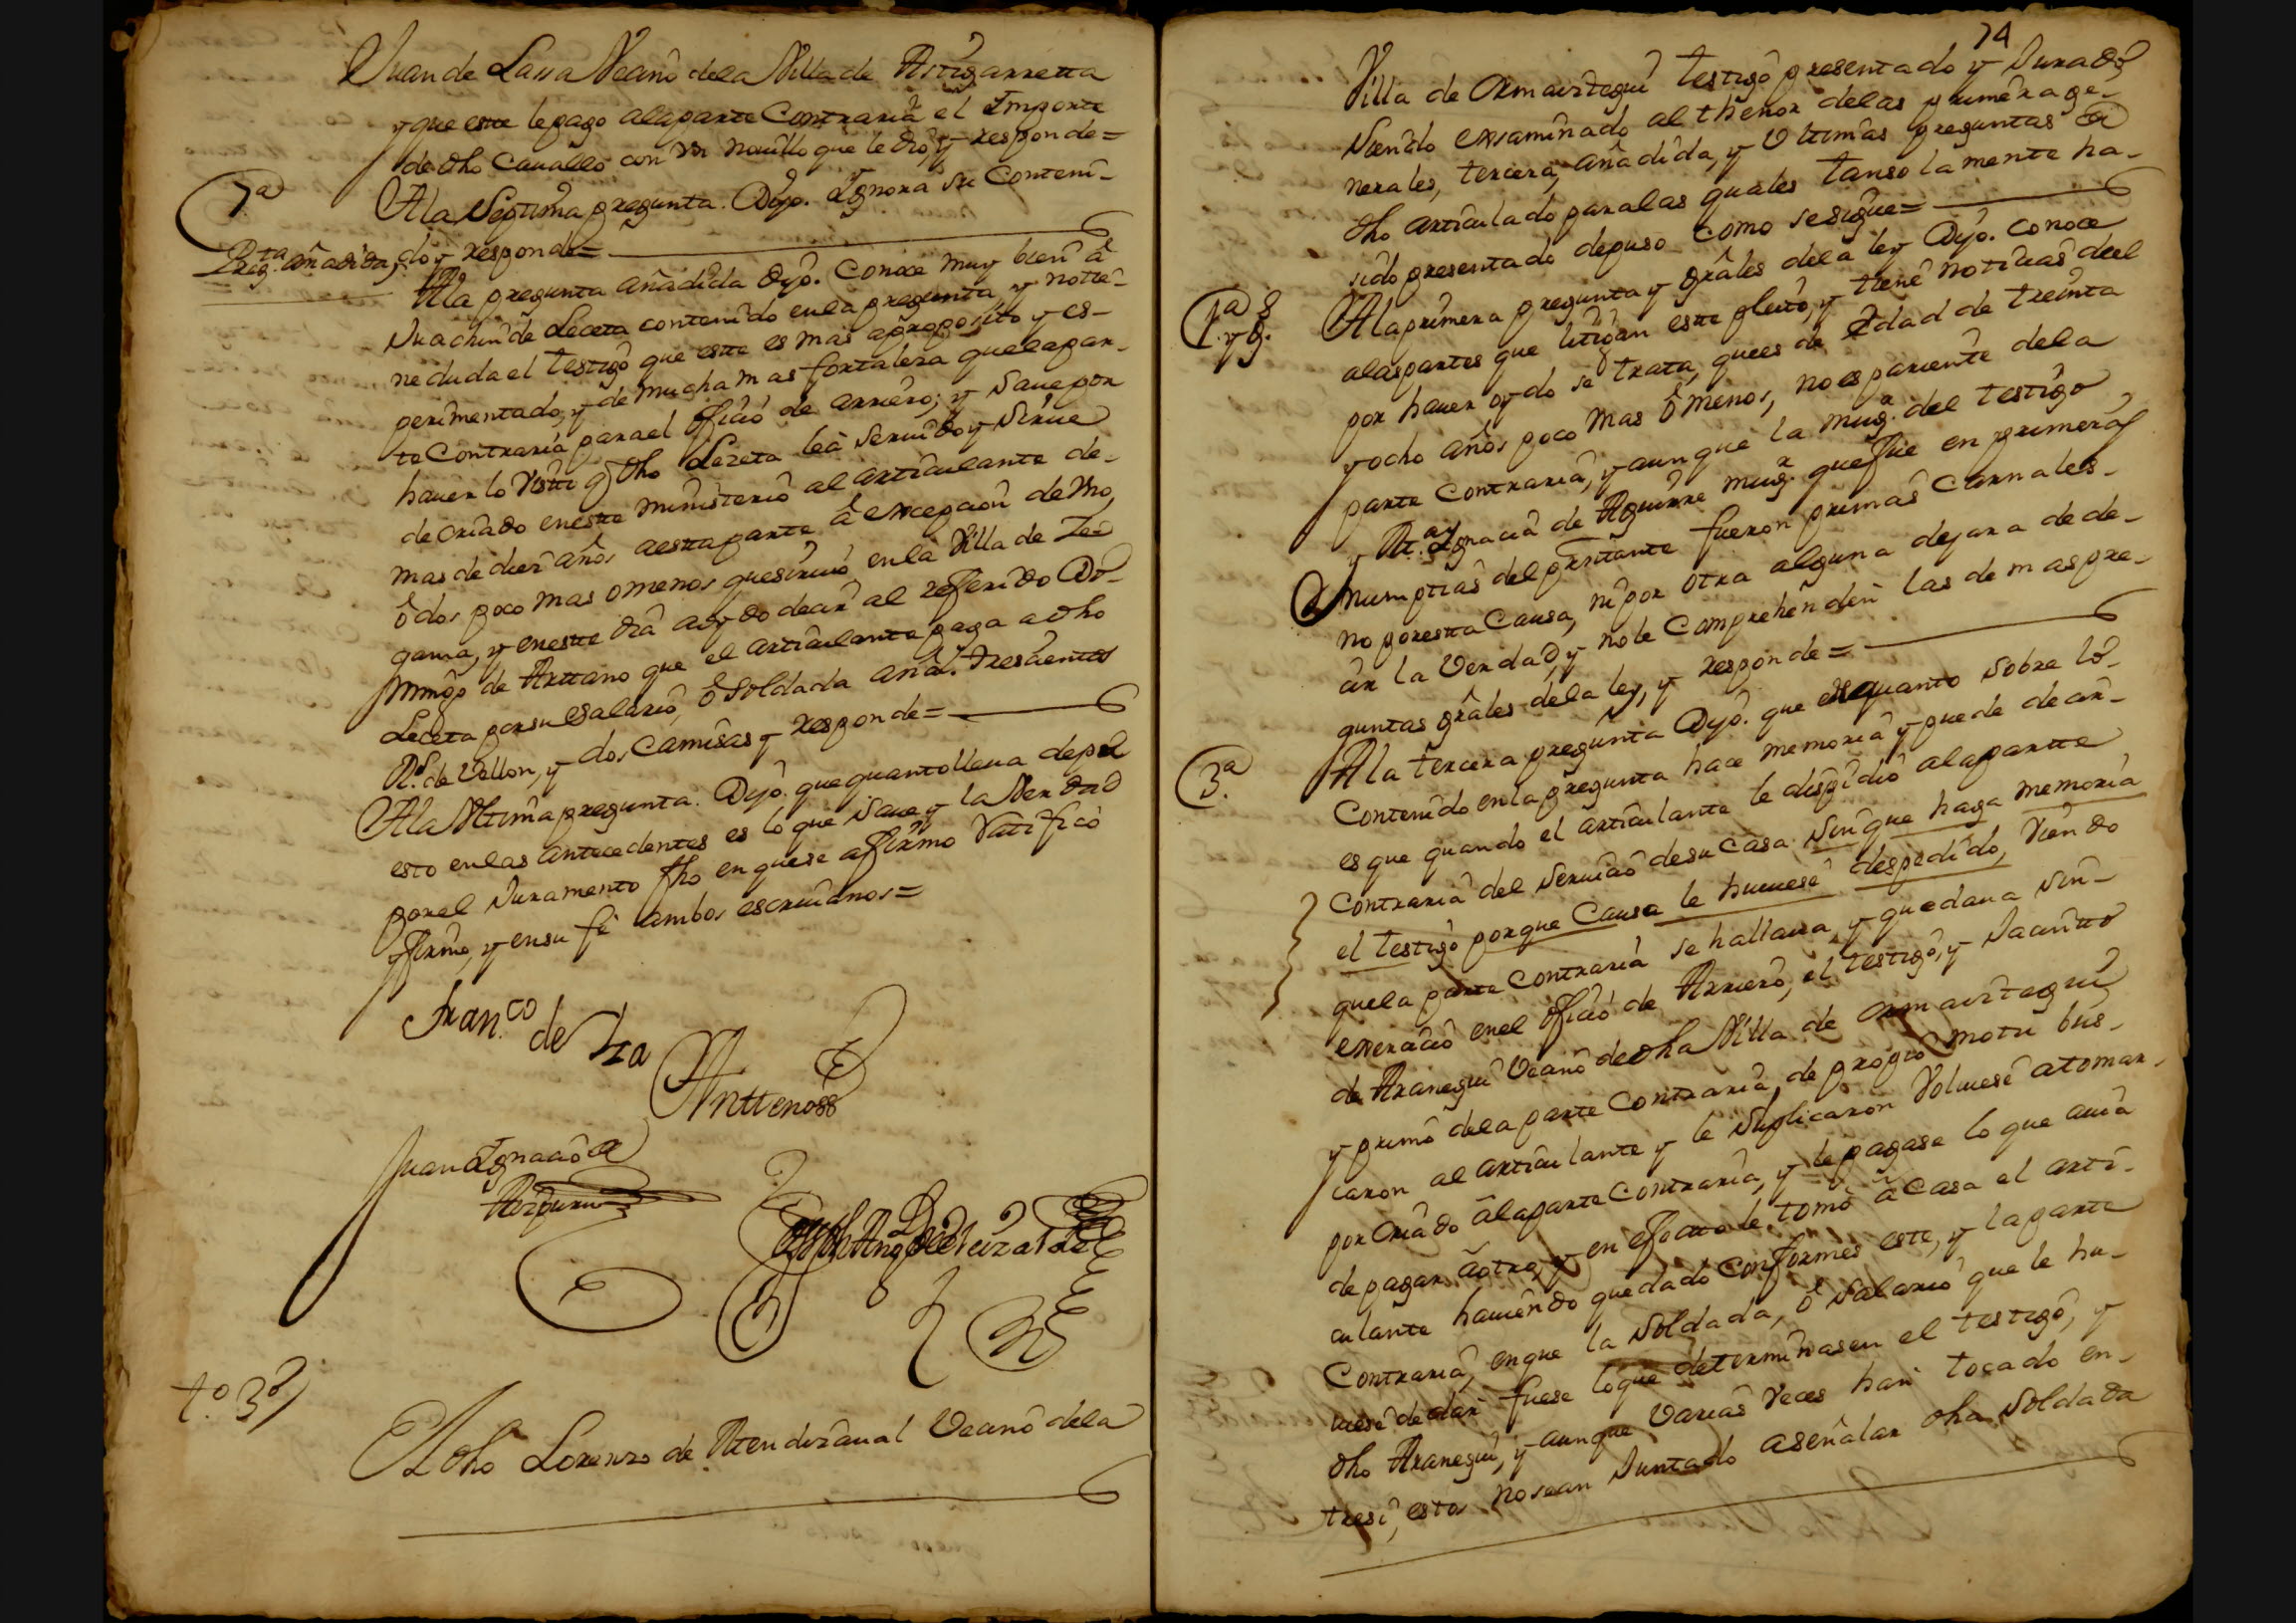 Juan de Lasa Vecino dela Villa de Astigarreta
y que este le pago ala parte Contraria el Importe
de dho Cavallo con un novillo que le dio, y responde=
7ª
A la Septima pregunta. Dijo. Ygnora su Conteni-
do y responde=
Pregta añadida
A la pregunta añadida dijo. Conoce muy bien â
Juachin de Leceta contenido en la pregunta, y no tie-
ne duda el testigo que este es mas aproposito y es-
perimentado, y de mucha mas fortaleza que la par-
te Contraria para el oficio de arriero; y save por
haverlo visto q dho Lezeta leâ servido y sirve
de criado en este ministerio al articulante de
mas de diez años aesta parte â excepcion de vno,
ô dos poco mas o menos que sirvio en la Villa de Ze-
gama, y en este dia a oydo decir al referido Do-
mingo de Arttano que el articulante paga a dho
Leceta por su esalario, ô Soldada anal. trescientos
Rs. de Vellon, y dos Camisas y responde=
A la Vltima pregunta. Dijo. que quanto lleva depu
esto en las antecedentes es lo que save y la Verdad
por el Juramento fho en que se afirmo Ratificò
firmo, y en su fe ambos escrivanos=
Franco. de Yza
Anttenoss
Juan Ygnacio
t.º 3º
El dho Lorenzo de Mendizaval Vecino dela
74
Villa de Ormaiztegui testigo presentado y Jurado
Siendo exsaminado al thenor delas primera ge-
nerales, tercera, añadida, y Vltimas preguntas de
dho articulado para las quales tansolamente ha
sido presentado depuso como se sigue=
1ª y g.
A la primera pregunta y grâles dela ley Dijo. conoce
alas partes que litigan este pleito, y tiene noticias deel
por haver oydo se trata, que es de Edad de treinta
y ocho años poco mas ô menos, no es pariente dela
parte Contraria, y aunque la mugr. del testigo
y Mª. Ygnacia de Aguirre mugr. que fue en primeras
Numptias del pritante fueron primas Carnales
no por esta Causa, ni por otra alguna dejara de de-
cir la Verdad, y no le Comprehenden las de mas pre-
guntas grâles dela ley, y responde=
3ª.
A la tercera pregunta Dijo. que en quanto sobre lo
Contenido en la pregunta hace memoria y puede decir
es que quando el articulante le despidio ala partte
Contraria del Servicio de su Casa sin que haga memoria
el testigo por que Causa le huuese despedido, viendo
que la parte Contraria se hallava, y quedava sin
exercicio en el oficio de Arriero, el testigo, y Jacintto
de Aranegui Vecino de dha Villa de Ormaiztegui
y primo dela parte Contraria, de propio motu bus-
caron al articulante y le Suplicaron Volviese atomar
por Criado âla parte Contraria, y le pagase lo que avia
de pagar âotro, y en efecto le tomô âCasa el arti-
culante haviendo quedado Conformes este, y la parte
Contraria, en que la Soldada, ô Salario que le hu-
viese de dar fuese loque determinasen el testigo, y
dho Aranegui, y aunque varias veces han tocado en-
tre si, estos no sean Juntado aseñalar dha Soldada